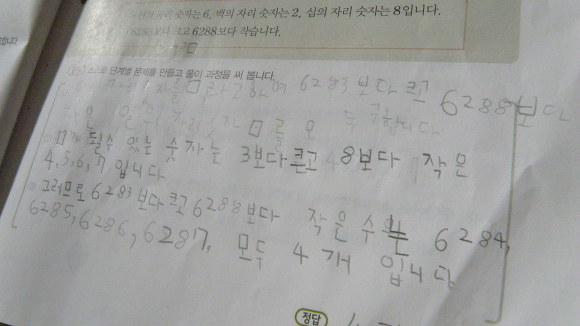 자리 숫자는 6, 백의 자리 숫자는 2, 십의 자리 숫자는 8입니다.
크고 6288보다 작습니다.
스스로 단계별 문제를 만들고 풀이 과정을 써 봅니다.
자리 숫자를 □라고 하여 6283보다 크고 6288보다
자리 숫자 □를 구합니다
□가 될 수 있는 숫자는 3보다 크고 8보다 작은
4, 5, 6, 7 입니다
그러므로 6283보다 크고 6288보다 작은 수는 6284,
6285, 6286, 6287, 모두 4개 입니다
정답